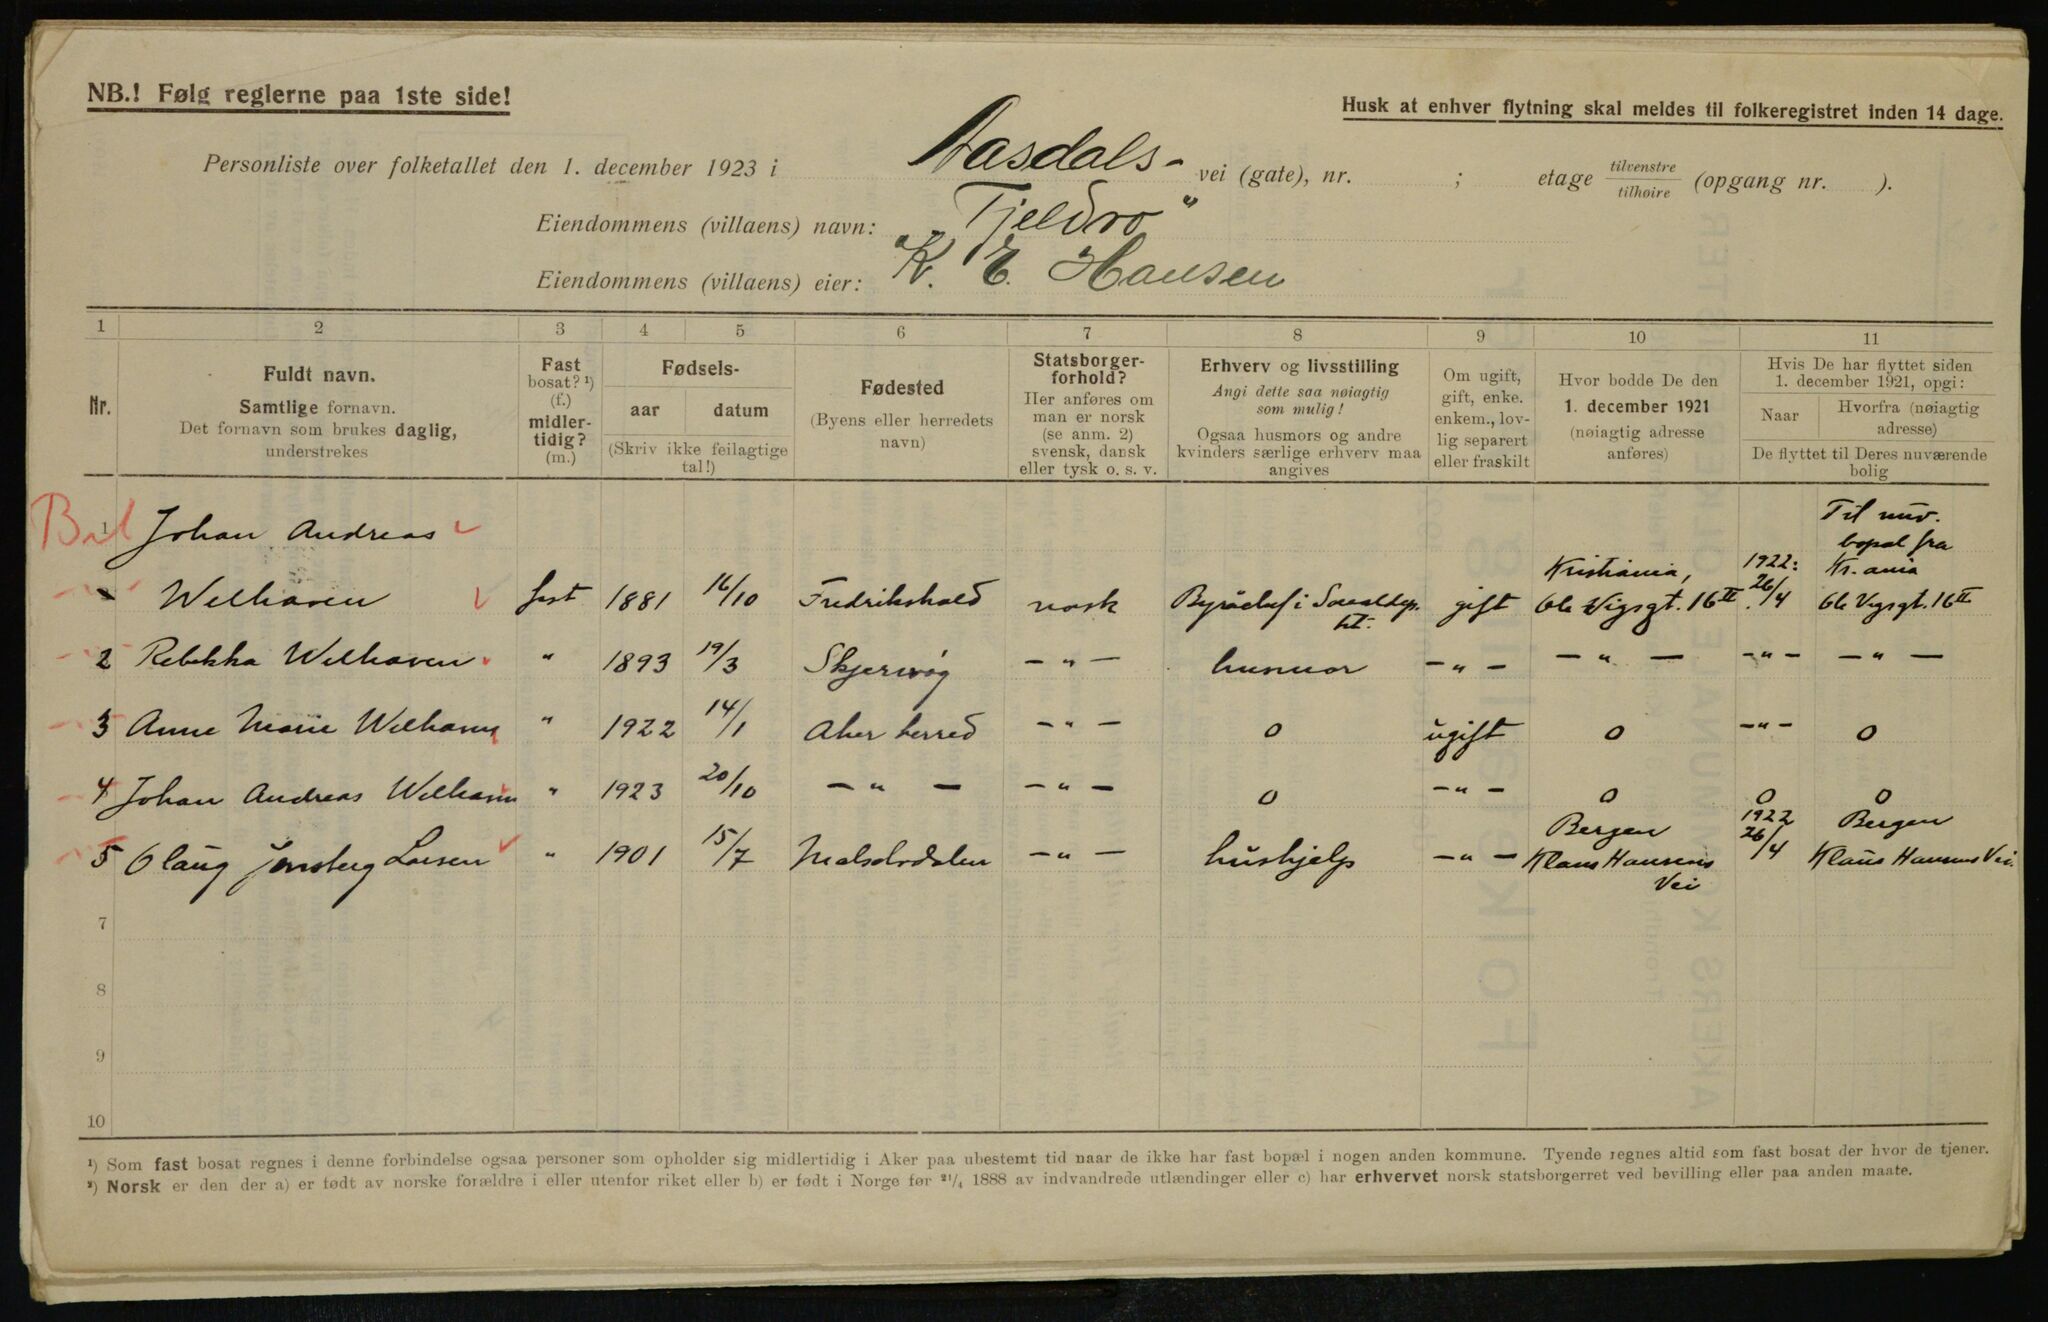 NB.! Følg reglerne paa 1ste side!
Husk at enhver flytning skal meldes til folkeregistret inden 14 dage.
Personliste over folketallet den 1. december 1923 i Aasdals- vei (gate), nr. ; etage tilvenstre/tilhøire (opgang nr. ).
Eiendommens (villaens) navn: "Tjeldro"
Eiendommens (villaens) eier: K. E. Hansen
1 2 3 4 5 6 7 8 9 10 11
Nr.
Fuldt navn.
Samtlige fornavn.
Det fornavn som brukes daglig,
understrekes
Fast
bosat? ¹)
(f.)
midler-
tidig?
(m.)
Fødsels-
aar datum
(Skriv ikke feilagtige
tal!)
Fødested
(Byens eller herredets
navn)
Statsborger-
forhold?
Her anføres om
man er norsk
(se anm. 2)
svensk, dansk
eller tysk o. s. v.
Erhverv og livsstilling
Angi dette saa nøiagtig
som mulig!
Ogsaa husmors og andre
kvinders særlige erhverv maa
angives
Om ugift,
gift, enke.
enkem., lov-
lig separert
eller fraskilt
Hvor bodde De den
1. december 1921
(nøiagtig adresse
anføres)
Hvis De har flyttet siden
1. december 1921, opgi:
Naar Hvorfra (nøiagtig
adresse)
De flyttet til Deres nuværende
bolig
1 Johan Andreas Til nuv.
bopæl fra
Kristiania, 1922: Kr.ania
Welhaven fast 1881 16/10 Fredrikshald norsk Byråchef i gift Ole Vigsgt. 16 II 26/4 Ole Vigsgt. 16 II
2 Rebekka Welhaven " 1893 19/3 Skjervøy — " — husmor — " — — " — — " — — " —
3 Anne Marie Welhaven " 1922 14/1 Aker herred — " — 0 ugift 0 — " — 0
4 Johan Andreas Welhaven " 1923 20/10 — " — — " — 0 — " — 0 0 0
Bergen 1922 Bergen
5 Olaug Larsen " 1901 15/7 — " — hushjelp — " — Klaus Hansens 26/4 Klaus Hansens Vei.
Vei
7
8
9
10
¹) Som fast bosat regnes i denne forbindelse ogsaa personer som opholder sig midlertidig i Aker paa ubestemt tid naar de ikke har fast bopæl i nogen anden kommune. Tyende regnes altid som fast bosat der hvor de tjener.
²) Norsk er den der a) er født av norske forældre i eller utenfor riket eller b) er født i Norge før ²¹/₄ 1888 av indvandrede utlændinger eller c) har erhvervet norsk statsborgerret ved bevilling eller paa anden maate.